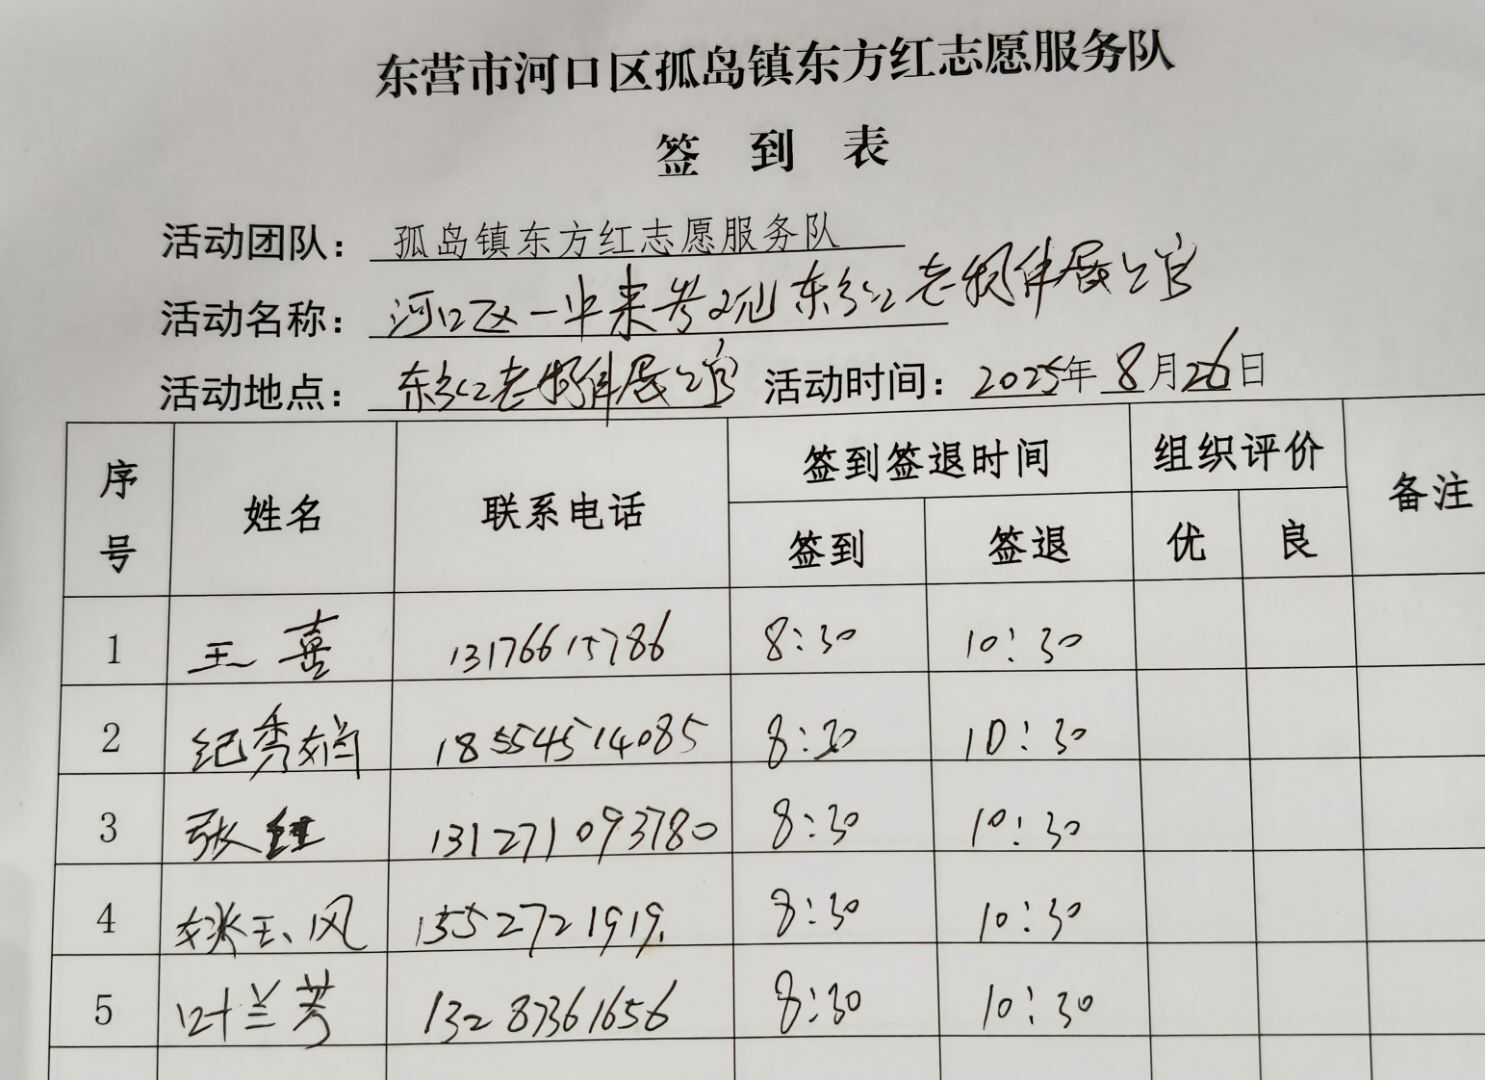 东营市河口区孤岛镇东方红志愿服务队
签 到 表
活动团队：孤岛镇东方红志愿服务队
活动名称：河口区一中来参观东方红老物件展览馆
活动地点：东方红老物件展览馆 活动时间：2025年8月26日
序号 姓名 联系电话 签到签退时间 组织评价 备注
签到 签退 优 良
1 王喜 13176615786 8:30 10:30
2 纪秀娟 18554514085 8:30 10:30
3 张红 131271093780 8:30 10:30
4 姚玉风 15527721919. 8:30 10:30
5 叶兰芳 13287361656 8:30 10:30